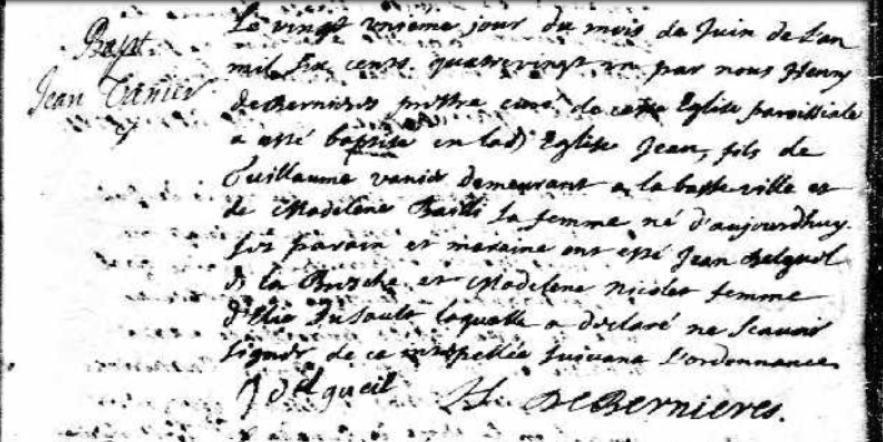 Bapt.
Jean Vanier
Le vingt unieme jour du mois de Juin de l'an
mil six cents quatrevingt un par nous Henry
de Bernieres prestre curé de cette Eglise paroissiale
a esté baptisé en lad. Eglise Jean, fils de
Guillaume vanier demeurant a la basse ville et
de Madelene Bailli sa femme né d'aujourdhuy.
ses parain et maraine ont esté Jean Delgueil
de la Bresche et Madelene Nicolet femme
d'Elie Dusault laquelle a declaré ne scavoir
signer de ce interpellée suivant l'ordonnance
J delgueil H. De Bernieres.